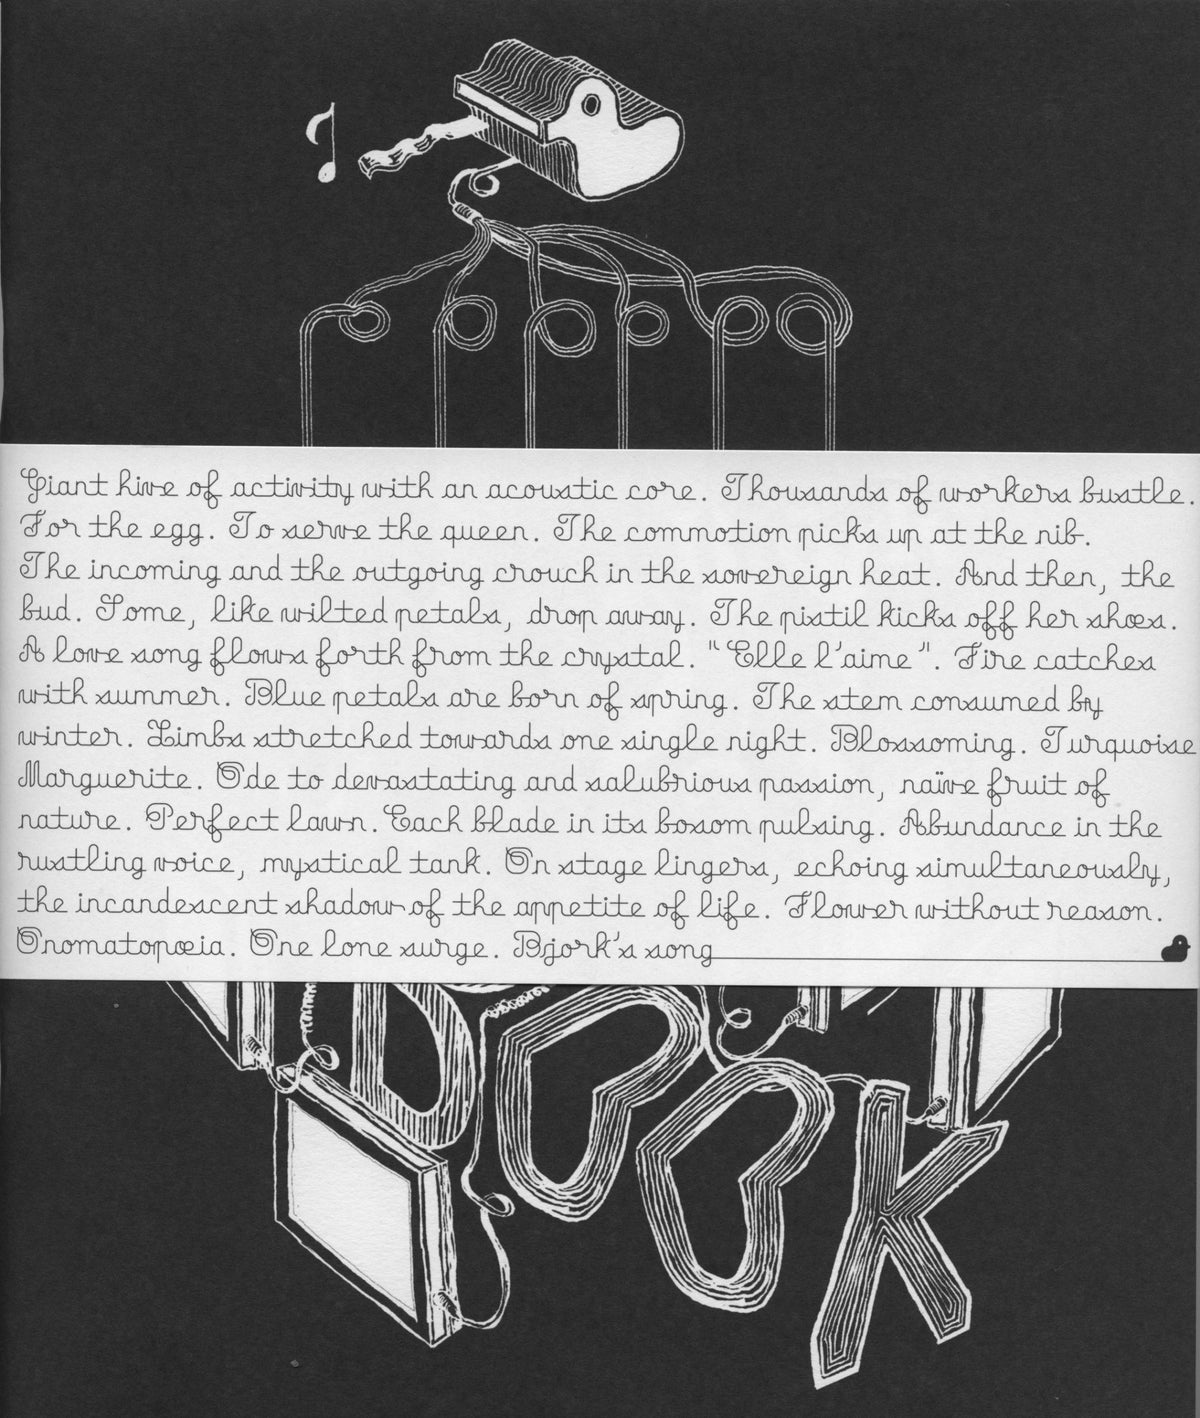 Giant hive of activity with an acoustic core. Thousands of workers bustle.
For the egg. To serve the queen. The commotion picks up at the nib.
The incoming and the outgoing crouch in the sovereign heat. And then, the
bud. Some, like wilted petals, drop away. The pistil kicks off her shœs.
A love song flows forth from the crystal. "Elle l'aime". Fire catches
with summer. Blue petals are born of spring. The stem consumed by
winter. Limbs stretched towards one single night. Blossoming. Turquoise
Marguerite. Ode to devastating and salubrious passion, naïve fruit of
nature. Perfect lawn. Each blade in its bosom pulsing. Abundance in the
rustling voice, mystical tank. On stage lingers, echoing simultaneously,
the incandescent shadow of the appetite of life. Flower without reason.
Onomatopœia. One lone surge. Bjork's song
BOOK